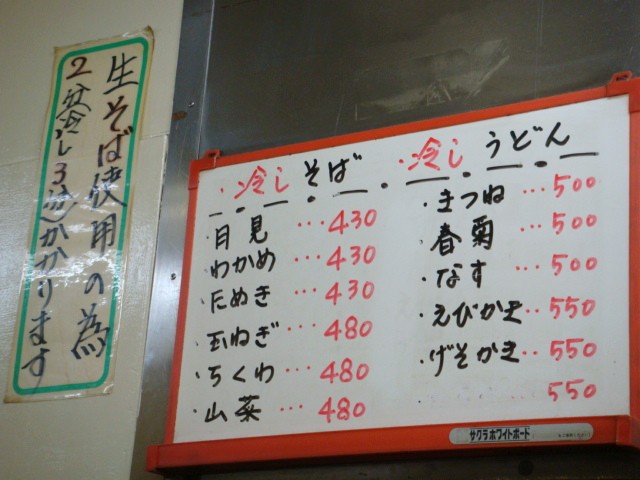 生そば使用の為
2分(冷し3分)かかります
・冷しそば ・冷しうどん
・月見 … 430
・わかめ … 430
・たぬき … 430
・玉ねぎ … 480
・ちくわ … 480
・山菜 … 480
・きつね … 500
・春菊 … 500
・なす … 500
・えびかき … 550
・げそかき … 550
550
サクラホワイトボード